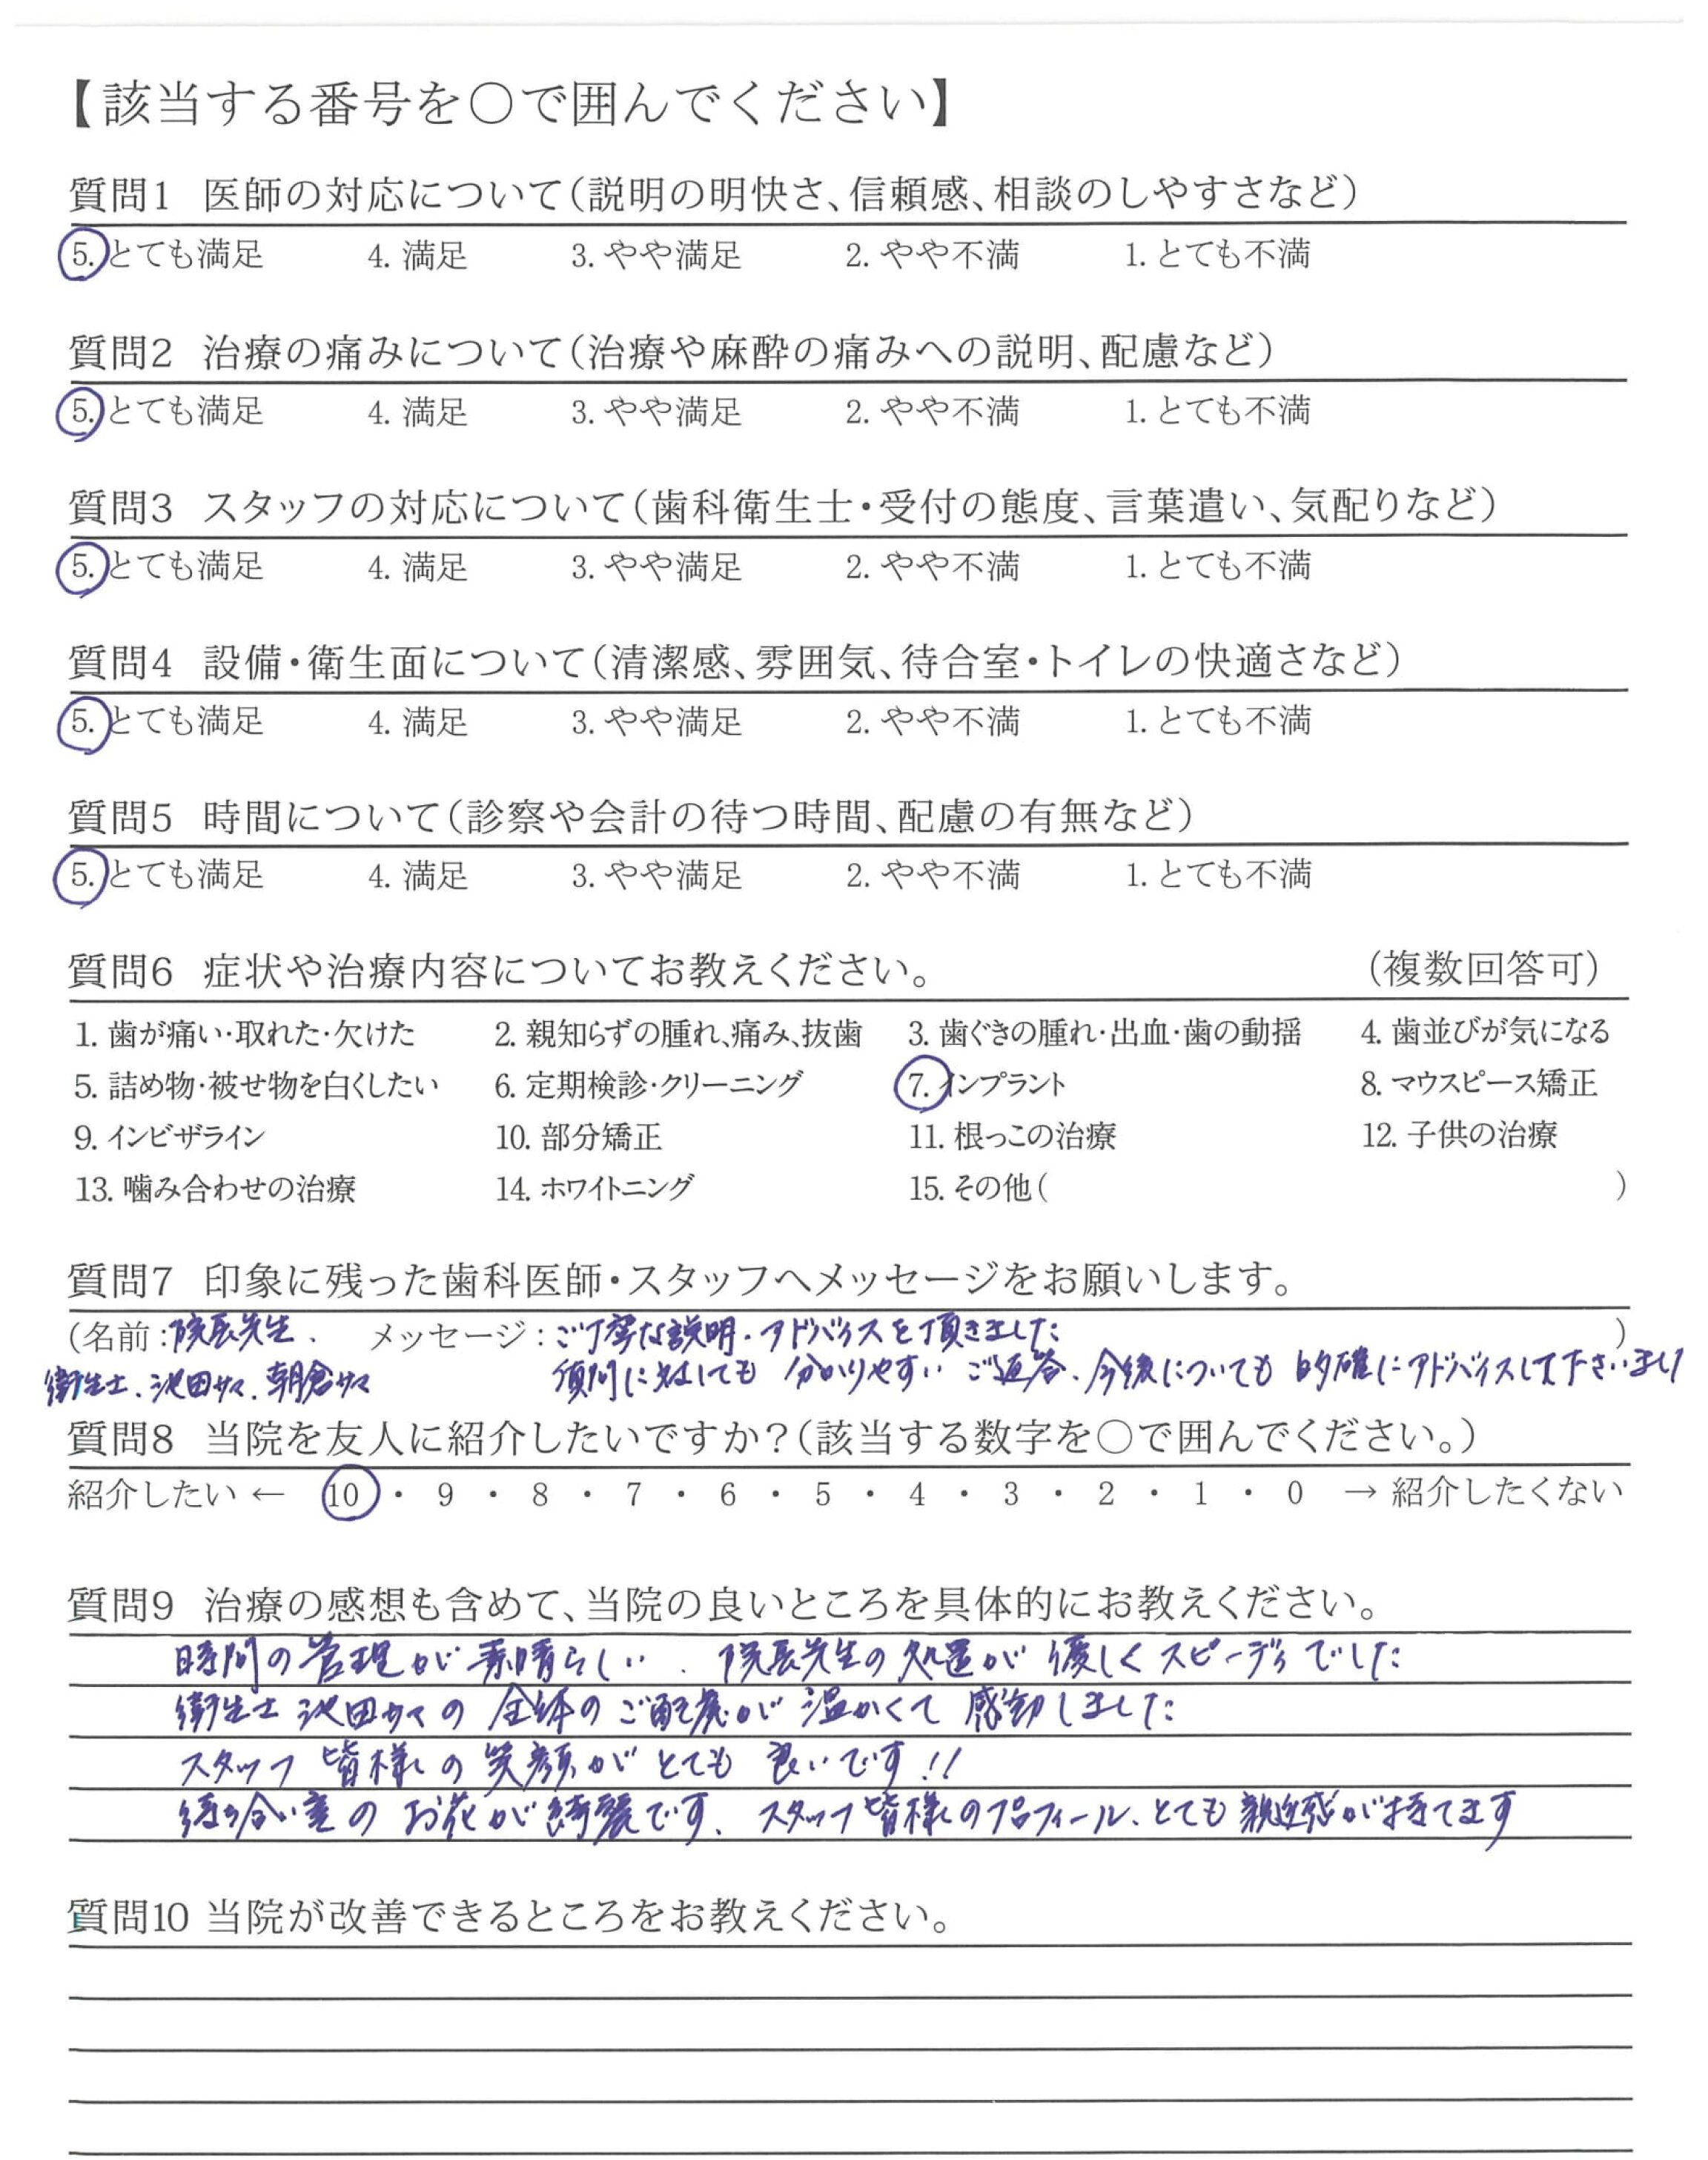 【該当する番号を○で囲んでください】
質問1 医師の対応について（説明の明快さ、信頼感、相談のしやすさなど）
5. とても満足 4. 満足 3. やや満足 2. やや不満 1. とても不満
質問2 治療の痛みについて（治療や麻酔の痛みへの説明、配慮など）
5. とても満足 4. 満足 3. やや満足 2. やや不満 1. とても不満
質問3 スタッフの対応について（歯科衛生士・受付の態度、言葉遣い、気配りなど）
5. とても満足 4. 満足 3. やや満足 2. やや不満 1. とても不満
質問4 設備・衛生面について（清潔感、雰囲気、待合室・トイレの快適さなど）
5. とても満足 4. 満足 3. やや満足 2. やや不満 1. とても不満
質問5 時間について（診察や会計の待つ時間、配慮の有無など）
5. とても満足 4. 満足 3. やや満足 2. やや不満 1. とても不満
質問6 症状や治療内容についてお教えください。 （複数回答可）
1. 歯が痛い・取れた・欠けた 2. 親知らずの腫れ、痛み、抜歯 3. 歯ぐきの腫れ・出血・歯の動揺 4. 歯並びが気になる
5. 詰め物・被せ物を白くしたい 6. 定期検診・クリーニング 7. インプラント 8. マウスピース矯正
9. インビザライン 10. 部分矯正 11. 根っこの治療 12. 子供の治療
13. 噛み合わせの治療 14. ホワイトニング 15. その他（ ）
質問7 印象に残った歯科医師・スタッフへメッセージをお願いします。
（名前：院長先生、 メッセージ：ご丁寧な説明・アドバイスを頂きました ）
衛生士、池田サマ、朝倉サマ 質問に対しても 分かりやすい ご返答、今後についても 的確にアドバイスして下さいまし
質問8 当院を友人に紹介したいですか？（該当する数字を○で囲んでください。）
紹介したい ← 10 ・ 9 ・ 8 ・ 7 ・ 6 ・ 5 ・ 4 ・ 3 ・ 2 ・ 1 ・ 0 → 紹介したくない
質問9 治療の感想も含めて、当院の良いところを具体的にお教えください。
時間の管理が素晴らしい、院長先生の処置が優しくスピーディでした
衛生士 池田サマの 全体のご配慮が 温かくて 感動しました
スタッフ 皆様の 笑顔が とても 良いです!!
待ち合い室の お花が 綺麗です、スタッフ皆様のプロフィール、とても 親近感が持てます
質問10 当院が改善できるところをお教えください。